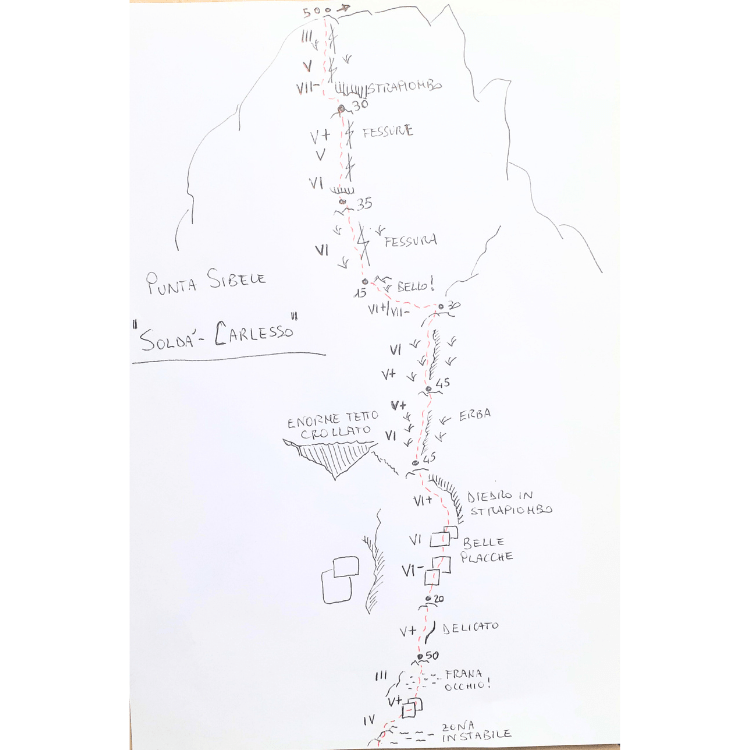 50
III
V
VII- STRAPIOMBO
30
V+ FESSURE
V
VI
35
VI FESSURA
BELLO!
15
VI+/VII- 30
PUNTA SIBELE
"SOLDA'- CARLESSO"
VI
V+ 45
V+
ERBA
VI
ENORME TETTO
CROLLATO
45
VI+ DIEDRO IN
STRAPIOMBO
VI BELLE
PLACCHE
VI-
20
V+ DELICATO
50
III FRANA
OCCHIO!
V+
IV ZONA
INSTABILE